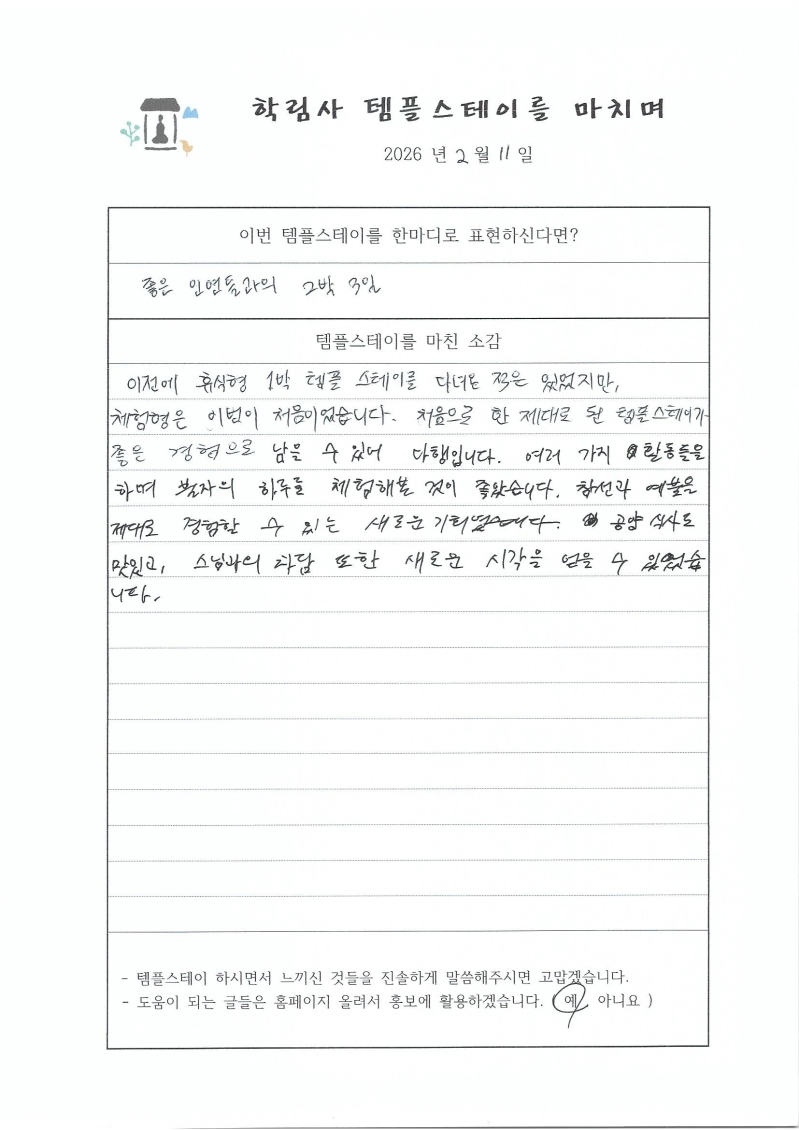 학림사 템플스테이를 마치며
2026 년 2 월 11 일
이번 템플스테이를 한마디로 표현하신다면?
좋은 인연들과의 2박 3일
템플스테이를 마친 소감
이전에 휴식형 1박 템플 스테이를 다녀온 적은 있었지만,
체험형은 이번이 처음이었습니다. 처음으로 한 제대로 된 템플스테이가
좋은 경험으로 남을 수 있어 다행입니다. 여러 가지 활동들을
하며 불자의 하루를 체험해본 것이 좋았습니다. 참선과 예불을
제대로 경험할 수 있는 새로운 기회였습니다. 공양 식사도
맛있고, 스님과의 차담 또한 새로운 시각을 얻을 수 있었습
니다.
- 템플스테이 하시면서 느끼신 것들을 진솔하게 말씀해주시면 고맙겠습니다.
- 도움이 되는 글들은 홈페이지 올려서 홍보에 활용하겠습니다. ( 예 아니요 )